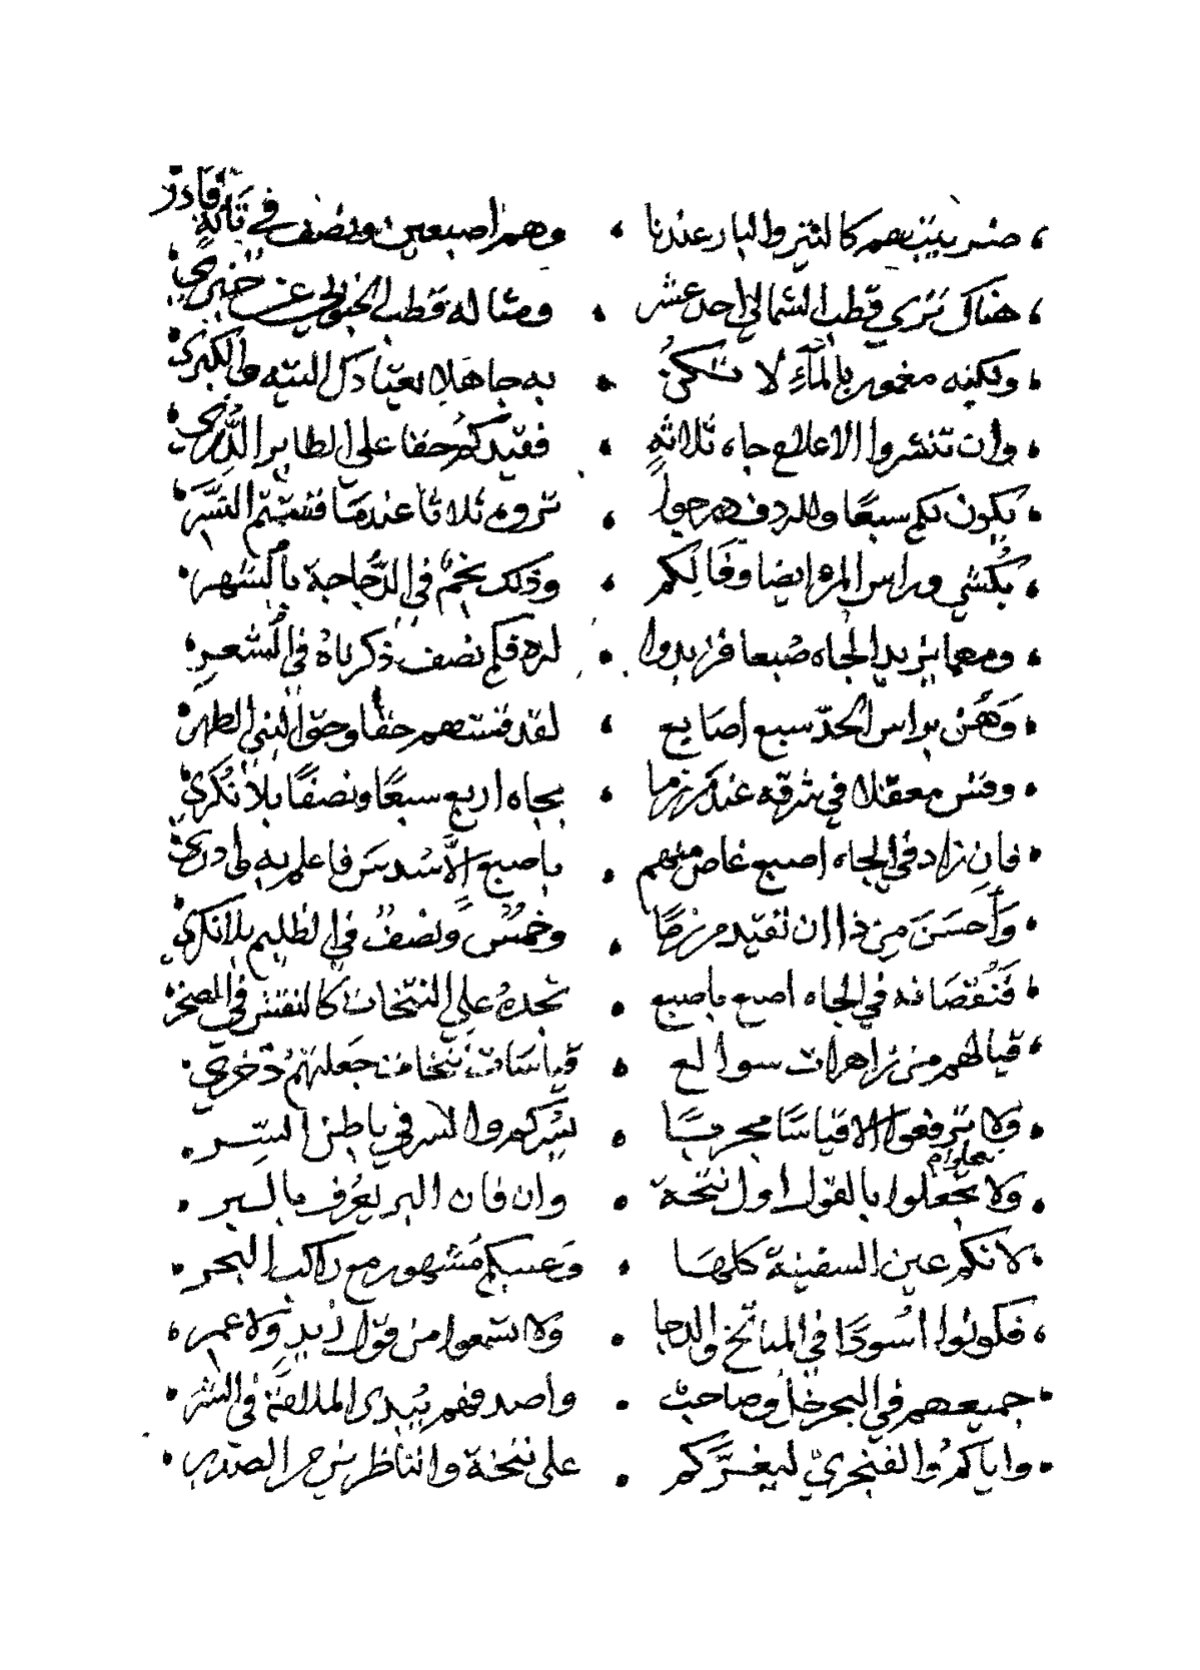 ضريبتهم كالنثر والبار عندنا ، وهم اصبعين ونصف في تانة قادر
هناك تري قطب الشمالي احد عشر . ومثاله قطب الجنوبي عن
ولكنه مغمور بالماء لا تكن . به جاهلا يعتادك التيه والكبري
وان تنشروا الاعلاع جاه ثلاثة . فقيدكم حقا علي الطاير الدري
يكون لكم سبعا والردف هرجوا ، تروم ثلاثا عندما فتمتم
بكشي وراس المره ايضا وفالكم ، وذلك نجم في الدجاجة بالشهر
ومهما يزيد الجاه ضبعا فزيدوا . لهم فكم نصف ذكرناه في الشعر
وهن براس الحد سبع اصابع ، لقد قستهم حقا وحق النبي الطهر
وقس معقلا في شرقه عند مرزما . بجاه اربع سبعا ونصفا بلا نكري
فان زاد في الجاه اصبع غاص منهم . باصبع الا سدس فاعلم به وادري
وأحسن من ذا ان تقيد مرزما . وخمس ونصف في الظليم بلا نكري
فنقصانه في الجاه اصبع باصبع . تجده علي النتخات كالنقش في الصخر
قيا لهم من زاهرات سوالع . قياسات نتخات جعلتهم ذخري
ولا ترفعوا الا قياسا مجربا . يسركم والسر في باطن السر
ولا تجعلوا بالقول اول نتخة . وان فان البر يعرف بالبر
لانكم عين السفينة كلها . وعيبكم مشهور مع راكب البحر
فكونوا اسودا في المناتخ والدجا . ولا تسمعوا من قول زيد ولا عمر
جميعهم في البحر خل وصاحب . واصدقهم يبدي الملاقة في الشر
واياكم والفنجري ليغركم . علي نتخة والناظرين حر الصدر